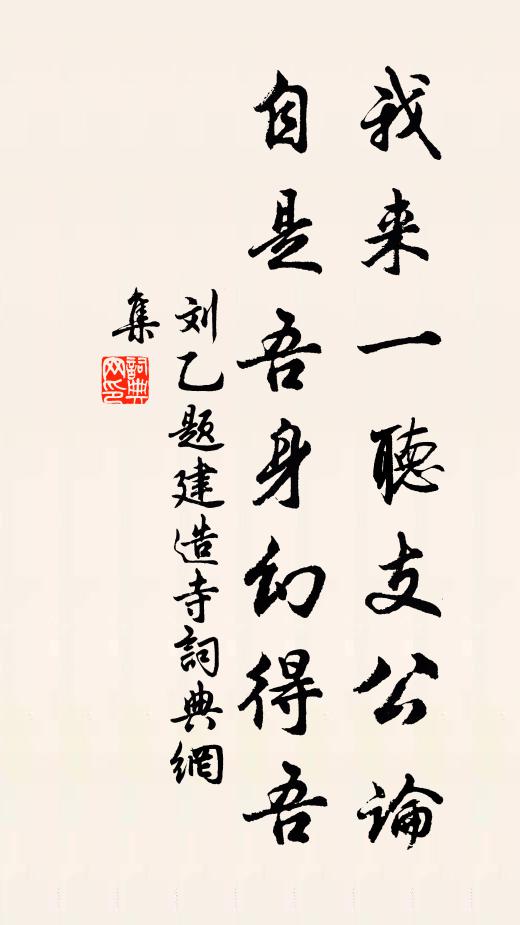 我来一聽支公論
自是吾身幻得吾
刘乙题建造寺詞典網
集
詞典
网印